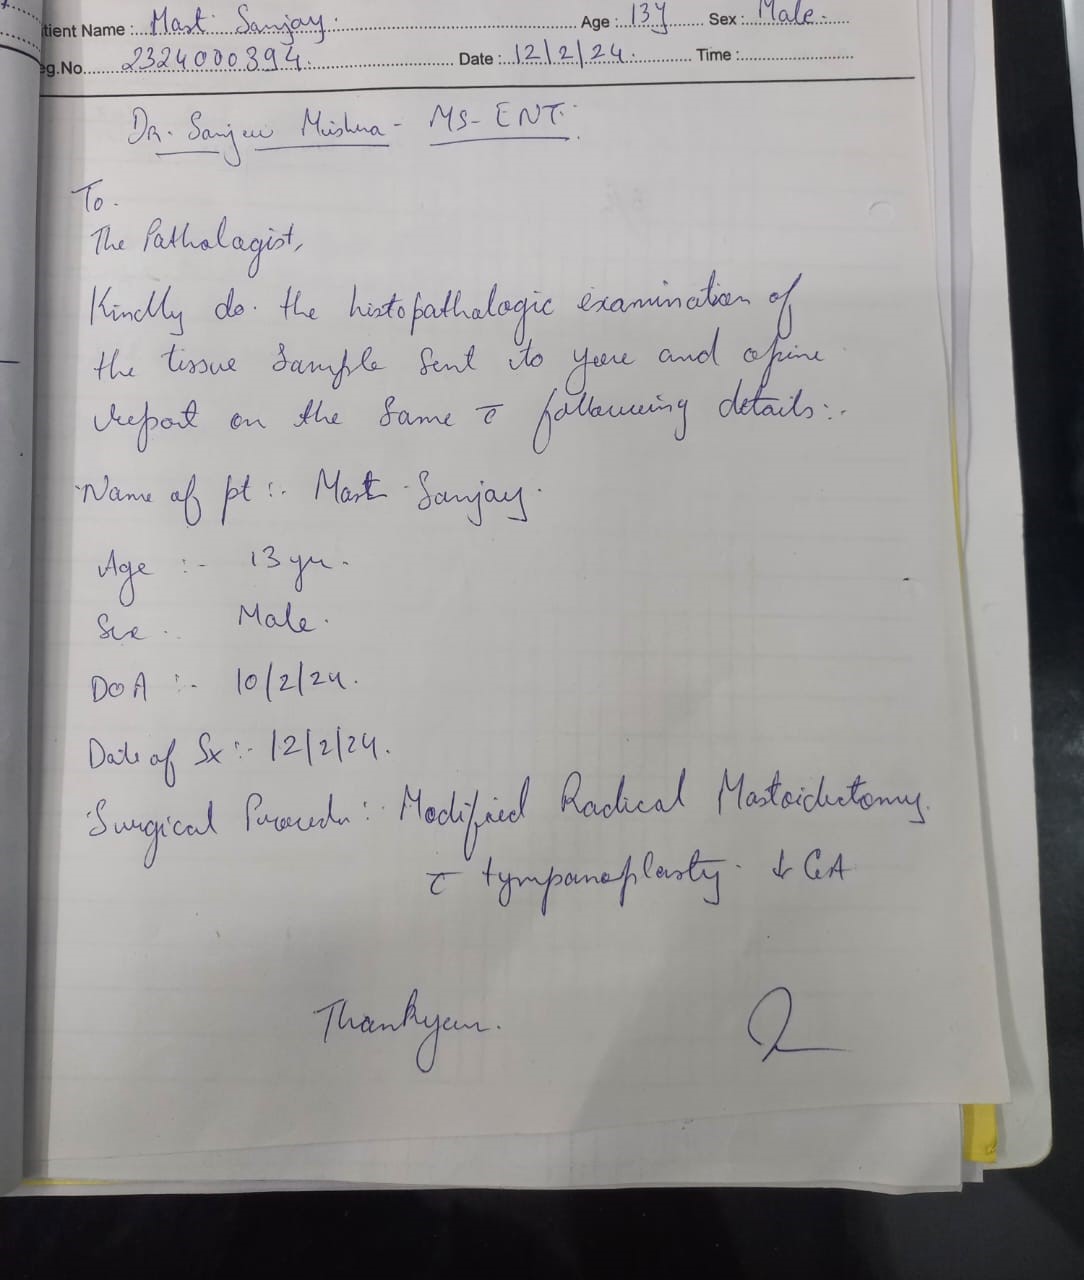 tient Name :.. Mast. Sanjay. Age : 13y Sex : Male.
eg.No. 2324000394. Date : 12/2/24. Time :
Dr. Sanjeev Mishra - MS-ENT.
To.
The Pathalagist,
Kindly do. the histopathalogic examination of
the tissue sample sent to you and opine
report on the same c̄ following details:-
Name of pt :- Mast. Sanjay.
Age :- 13 yr.
Sex :-  Male.
DOA :- 10/2/24.
Date of Sx :- 12/2/24.
Surgical Procedu : Modified Radical Mastoidectomy.
c̄ tympanoplasty. ↓ GA
Thankyou.